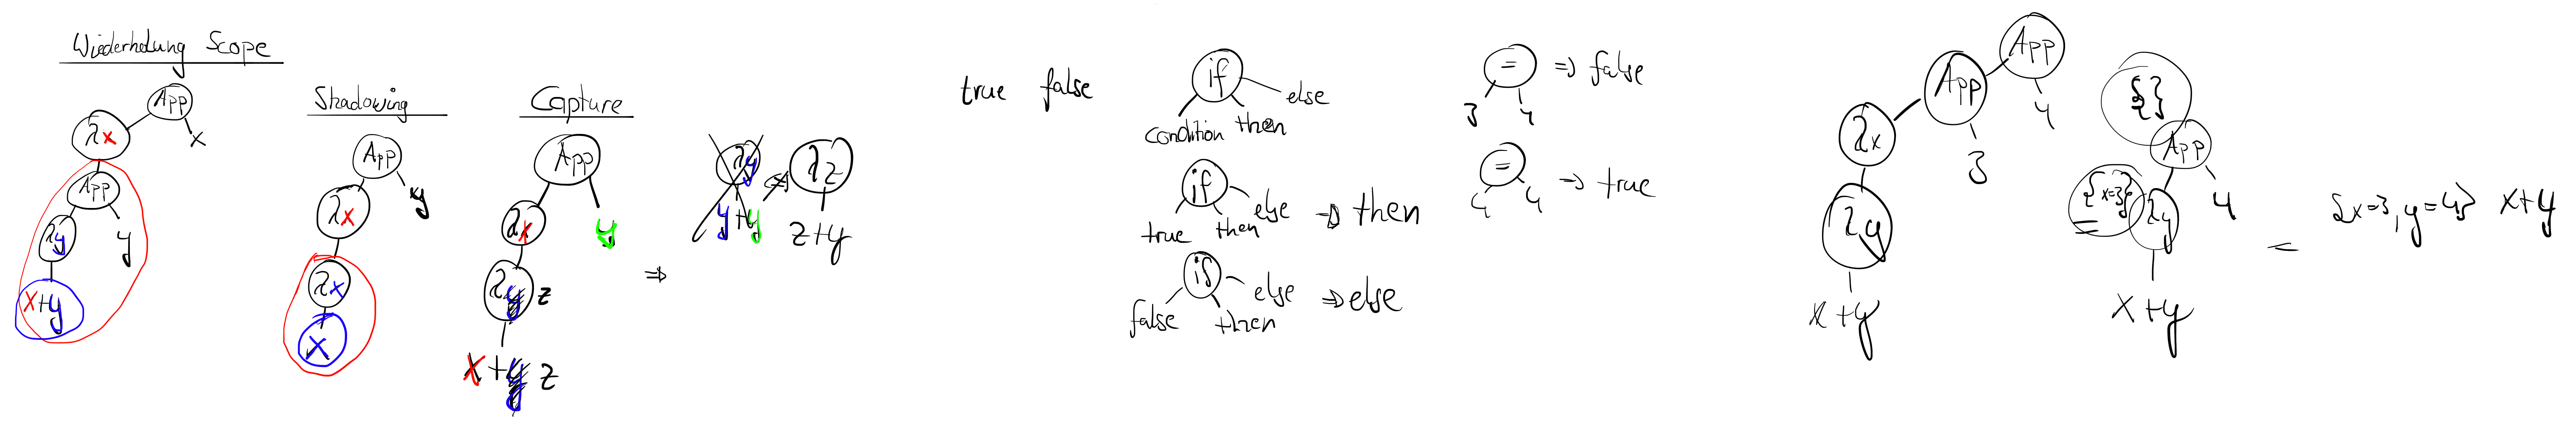 Wiederholung Scope
App
λx
x
App
λy
y
x+y
Shadowing
App
λx
y
λx
x
Capture
App
λx
y
λy z
x+y z
⇒
λy
y+y
⇔
λz
z+y
true false
if
condition then else
if
true then else ⇒ then
if
false then else ⇒ else
= ⇒ false
3 4
= ⇒ true
4 4
App
App
4
λx
3
λy
x+y
{}
App
{x=3}
λy
4
x+y
=
{x=3, y=4} x+y